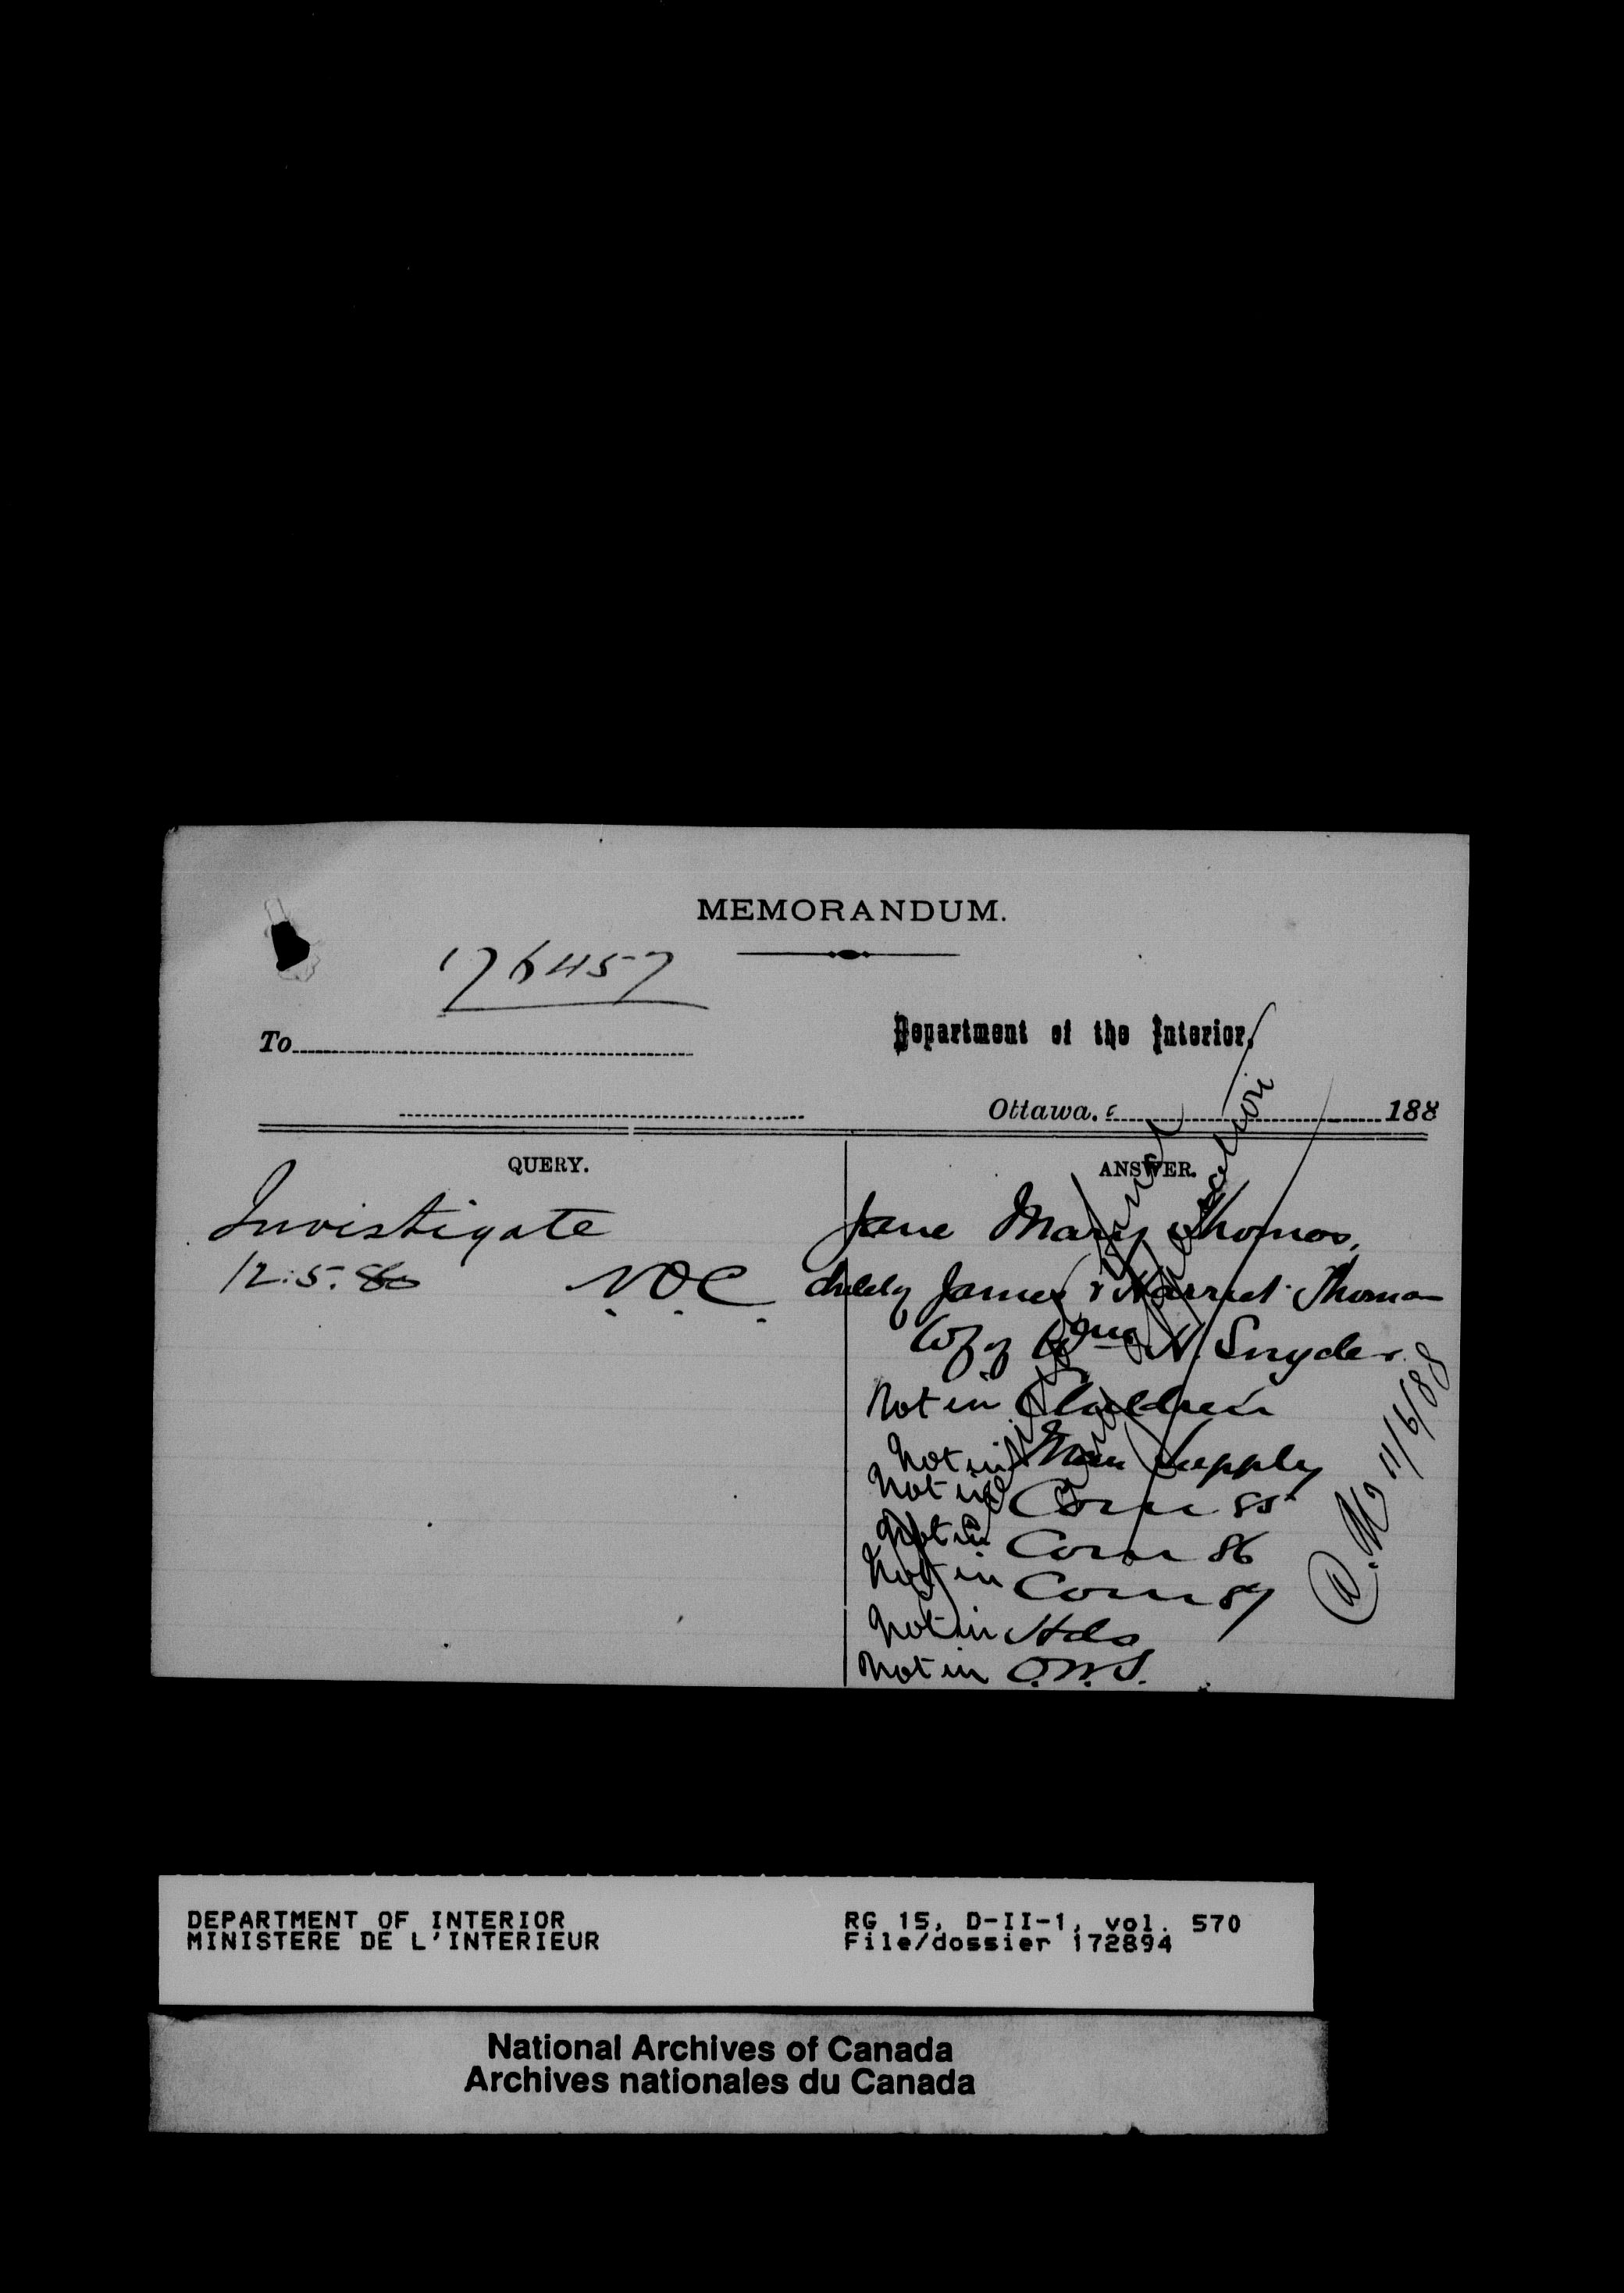 MEMORANDUM.
176457
To
Department of the Interior,
Ottawa. 188
QUERY.
ANSWER.
Invistigate
12.5.88 N.O.C.
Jane Mary Thomas,
child of James & Harriet Thomas
Wf of Wm H. Snyder.
Not in Children
Not in Man Supply
Not in Com 85
Not in Com 86
Not in Com 87
Not in Hds
Not in O.W.S.
11/6/88
DEPARTMENT OF INTERIOR
MINISTERE DE L'INTERIEUR
RG 15, D-II-1, vol. 570
File/dossier 172894
National Archives of Canada
Archives nationales du Canada